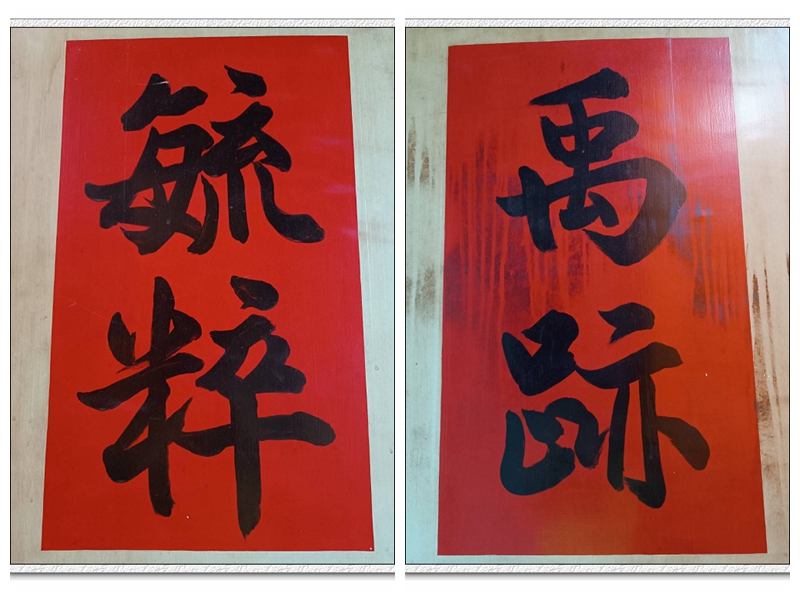 毓粹
禹跡